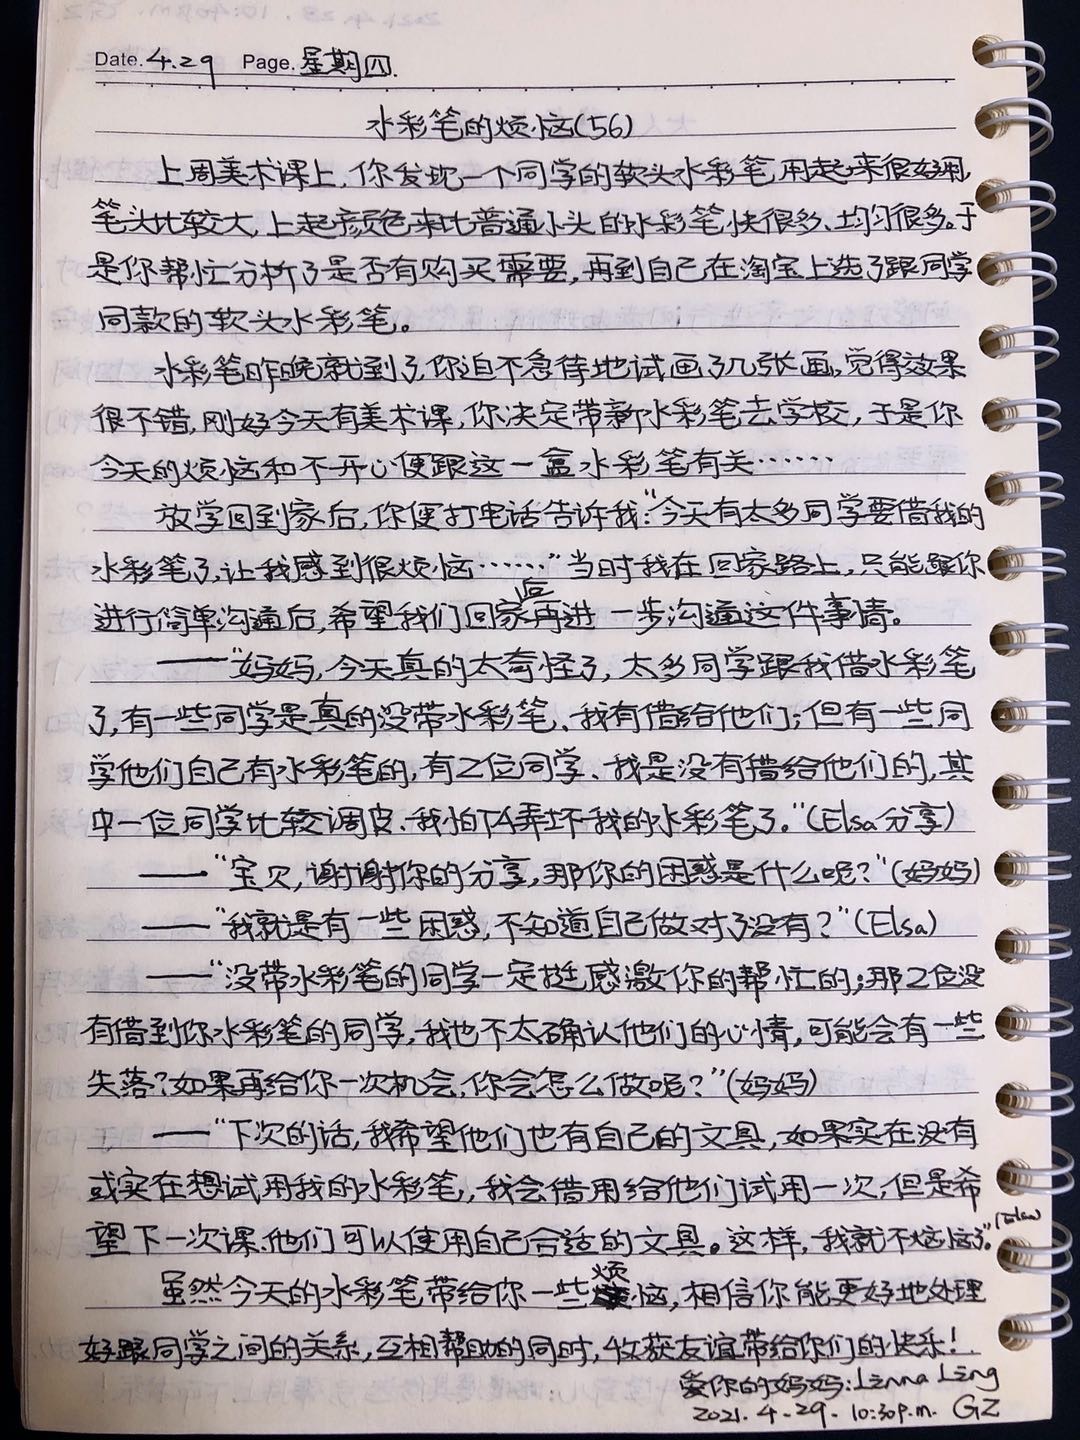 Date. 4.29 Page. 星期四.
水彩笔的烦恼(56)
上周美术课上,你发现一个同学的软头水彩笔,用起来很好用,
笔头比较大,上起颜色来比普通小头的水彩笔快很多、均匀很多。于
是你帮忙分析了是否有购买需要,再到自己在淘宝上选了跟同学
同款的软头水彩笔。
水彩笔昨晚就到了,你迫不急待地试画了几张画,觉得效果
很不错,刚好今天有美术课,你决定带新水彩笔去学校,于是你
今天的烦恼和不开心便跟这一盒水彩笔有关……
放学回到家后,你便打电话告诉我:“今天有太多同学要借我的
水彩笔了,让我感到很烦恼……”当时我在回家路上,只能跟你
进行简单沟通后,希望我们回家后再进一步沟通这件事情。
——“妈妈,今天真的太奇怪了,太多同学跟我借水彩笔
了,有一些同学是真的没带水彩笔、我有借给他们;但有一些同
学他们自己有水彩笔的,有2位同学、我是没有借给他们的,其
中一位同学比较调皮、我怕TA弄坏我的水彩笔了。”(Elsa分享)
——“宝贝,谢谢你的分享,那你的困惑是什么呢?”(妈妈)
——“我就是有一些困惑,不知道自己做对了没有?”(Elsa)
——“没带水彩笔的同学一定挺感激你的帮忙的;那2位没
有借到你水彩笔的同学,我也不太确认他们的心情,可能会有一些
失落?如果再给你一次机会,你会怎么做呢?”(妈妈)
——“下次的话,我希望他们也有自己的文具,如果实在没有
或实在想试用我的水彩笔,我会借用给他们试用一次,但是希
望下一次课、他们可以使用自己合适的文具。这样,我就不烦恼了。”(Elsa)
虽然今天的水彩笔带给你一些烦恼,相信你能更好地处理
好跟同学之间的关系,互相帮助的同时,收获友谊带给你们的快乐!
爱你的妈妈:Linna Ling
2021.4.29. 10:30p.m. GZ